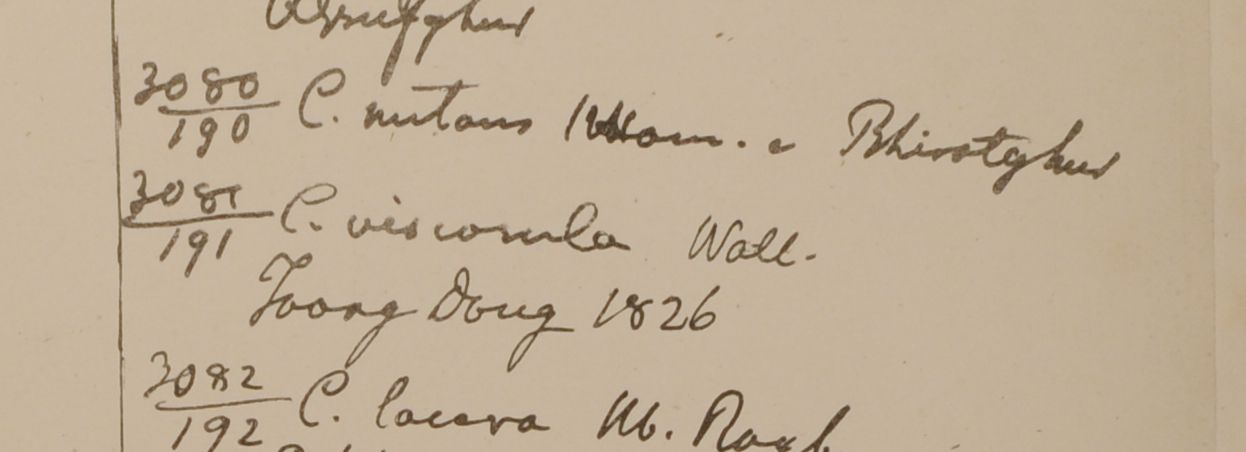 3080
190 C. nutans Ham. e Bhirotghur
3081
191 C. viscosula Wall.
Toong Doug 1826
3082
192 C. lacera Hb. Roxb